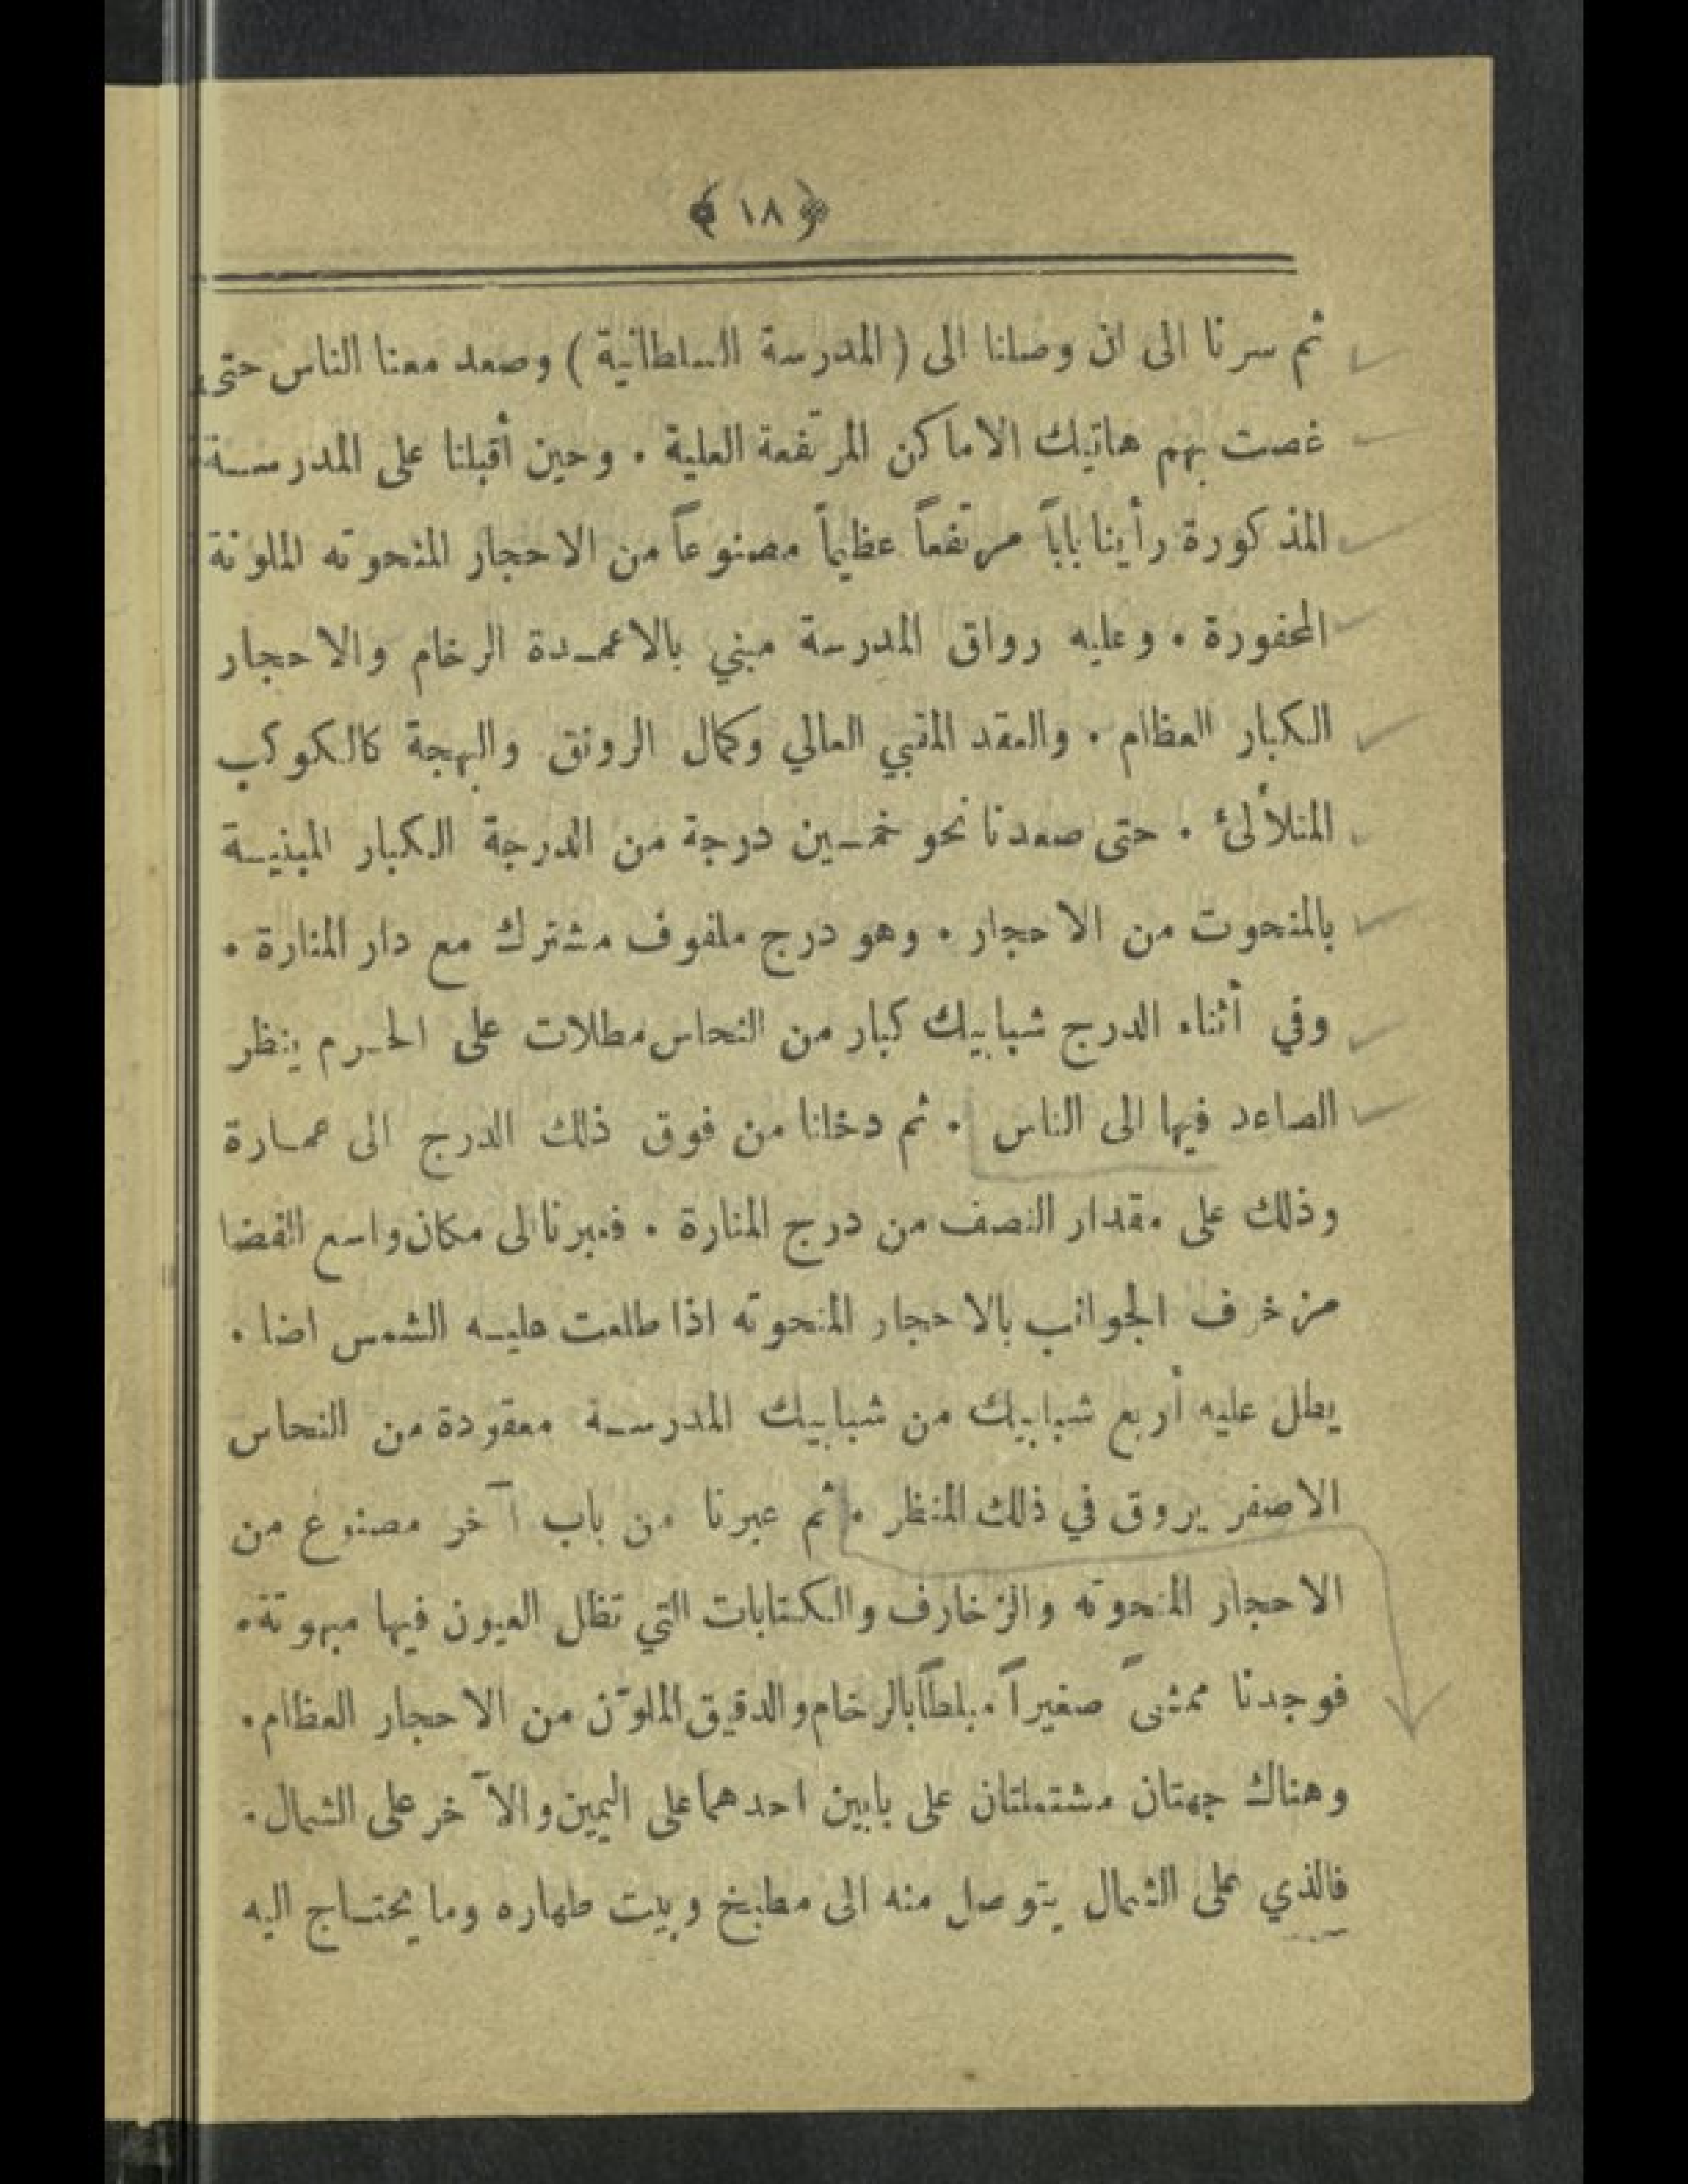 ﴿ ١٨ ﴾
ثم سرنا الى ان وصلنا الى ( المدرسة السلطانية ) وصعد معنا الناس حتى
غصت بهم هاتيك الاماكن المرتفعة العلية . وحين أقبلنا على المدرسة
المذكورة رأينا باباً مرتفعاً عظيماً مصنوعاً من الاحجار المنحوته الملونة
المحفورة . وعليه رواق المدرسة مبني بالاعمدة الرخام والاحجار
الكبار العظام . والعقد المقبي العالي وكمال الرونق والبهجة كالكوكب
المتلألئ . حتى صعدنا نحو خمسين درجة من الدرجة الكبار المبنية
بالمنحوت من الاحجار . وهو درج ملفوف مشترك مع دار المنارة .
وفي أثناء الدرج شبابيك كبار من النحاس مطلات على الحرم ينظر
الصاعد فيها الى الناس . ثم دخلنا من فوق ذلك الدرج الى عمارة
وذلك على مقدار النصف من درج المنارة . فعبرنا الى مكان واسع الفضا
مزخرف الجوانب بالاحجار المنحوته اذا طلعت عليه الشمس اضا .
يطل عليه أربع شبابيك من شبابيك المدرسة معقودة من النحاس
الاصفر يروق في ذلك المنظر . ثم عبرنا من باب آخر مصنوع من
الاحجار المنحوته والزخارف والكتابات التي تظل العيون فيها مبهوتة .
فوجدنا ممشىً صغيراً مبلطاً بالرخام والدقيق الملوّن من الاحجار العظام .
وهناك جهتان مشتملتان على بابين احدهما على اليمين والآخر على الشمال .
فالذي على الشمال يتوصل منه الى مطبخ وبيت طهاره وما يحتاج اليه